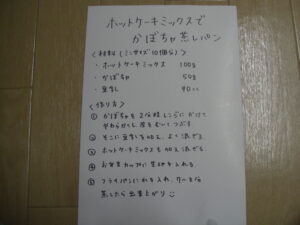 ホットケーキミックスで
かぼちゃ蒸しパン
〈材料(ミニサイズ10個分)〉
・ホットケーキミックス 100g
・かぼちゃ 50g
・豆乳 90cc
〈作り方〉
① かぼちゃを2分程レンジにかけて
やわらかくし、皮をむいてつぶす
② そこに豆乳を加え、よく混ぜる
③ ホットケーキミックスも加え混ぜる
④ お弁当カップに生地を入れる
⑤ フライパンに水を入れ、7〜8分
蒸したら出来上がり